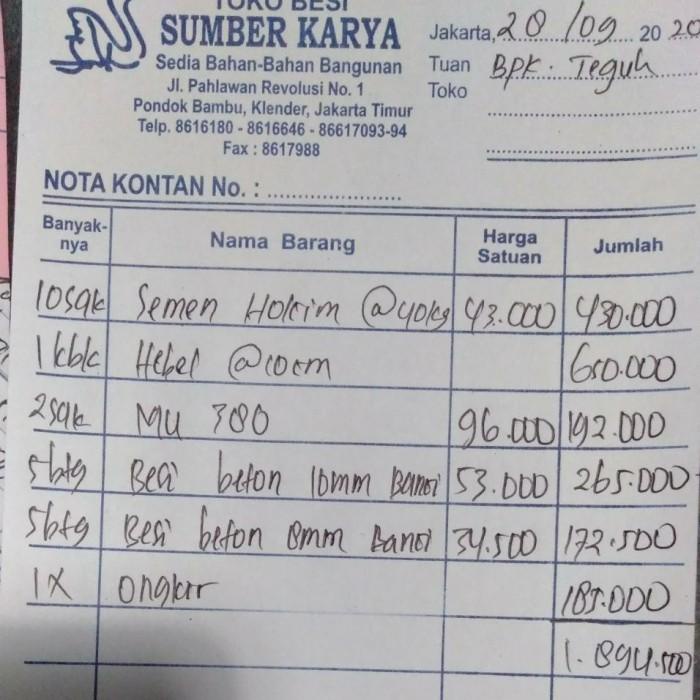 TOKO BESI
SUMBER KARYA
Sedia Bahan-Bahan Bangunan
Jl. Pahlawan Revolusi No. 1
Pondok Bambu, Klender, Jakarta Timur
Telp. 8616180 - 8616646 - 86617093-94
Fax : 8617988
Jakarta, 28 /09 2020
Tuan Bpk. Teguh
Toko
NOTA KONTAN No. :
Banyak-nya Nama Barang Harga Satuan Jumlah
10 sak Semen Holcim @40kg 43.000 430.000
1 kbk Hebel @10cm 650.000
2 sak MU 380 96.000 192.000
5 btg Besi beton 10mm Banci 53.000 265.000
5 btg Besi beton 8mm Banci 34.500 172.500
1X ongkir 185.000
1.894.500